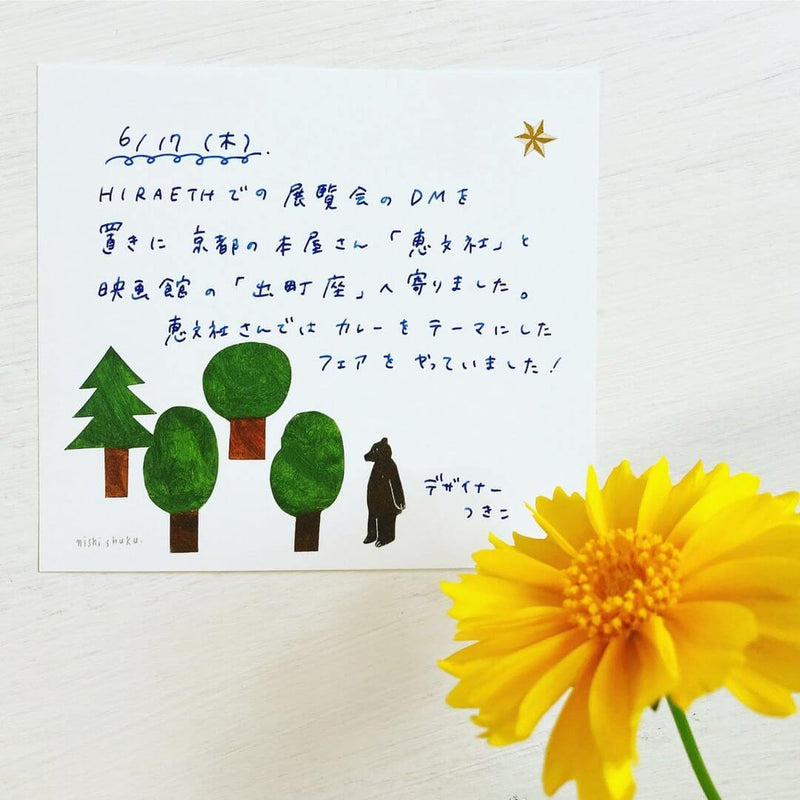 6/17 (木).
HIRAETHでの展覧会のDMを
置きに京都の本屋さん「恵文社」と
映画館の「出町座」へ寄りました。
恵文社さんでは カレーをテーマにした
フェアをやっていました!
デザイナー
つきこ
nishi shuku.